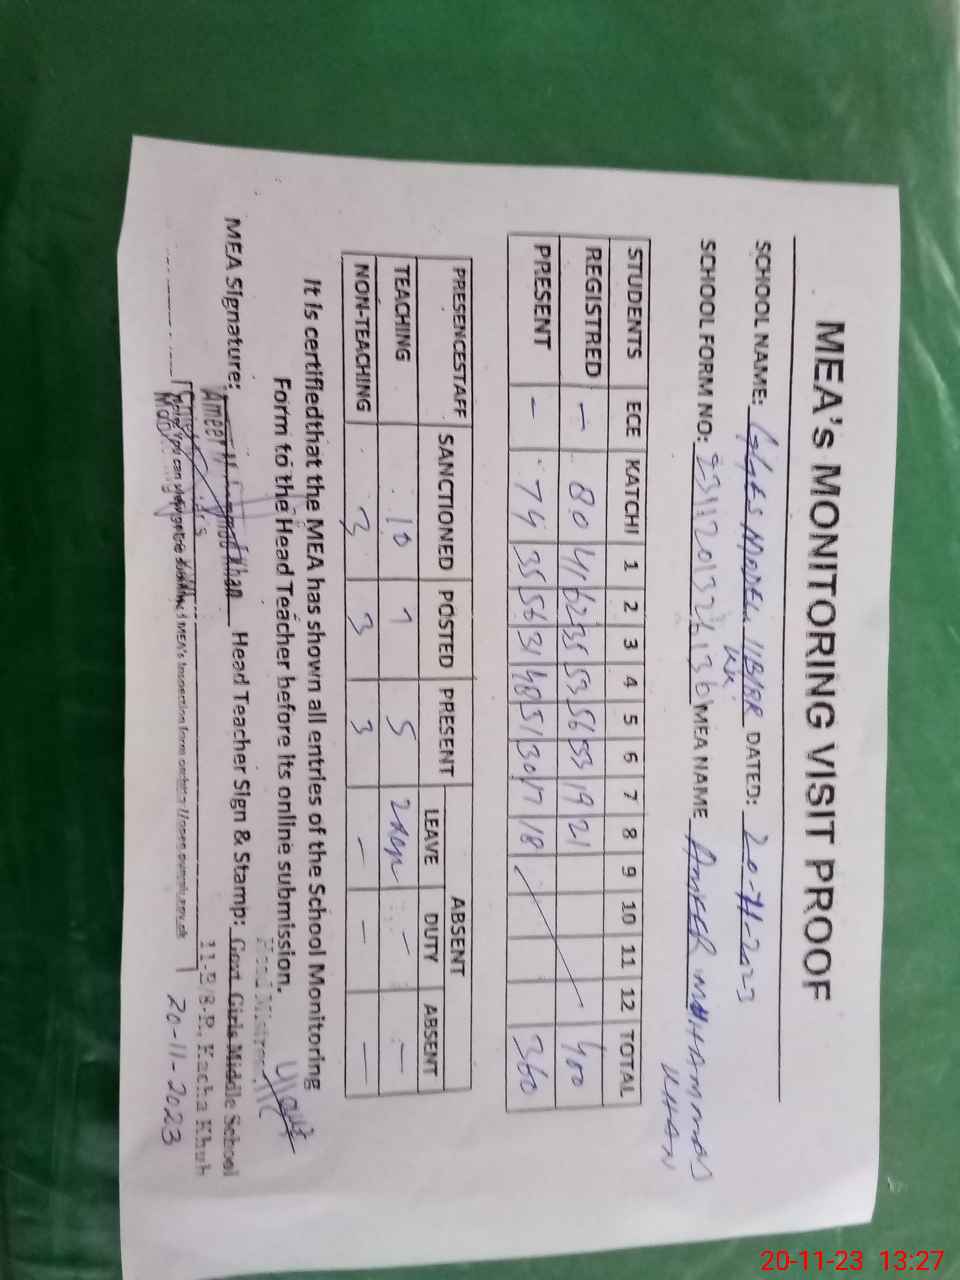 MEA's MONITORING VISIT PROOF
SCHOOL NAME: MODEL 11B/BR DATED: 20-11-2023
SCHOOL FORM NO: 2311201326136 MEA NAME AMEER MUHAMMAD KHAN
STUDENTS ECE KATCHI 1 2 3 4 5 6 7 8 9 10 11 12 TOTAL
REGISTRED – 80 41 62 35 53 56 33 19 21 400
PRESENT – 74 35 56 31 48 51 30 17 18 360
PRESENCESTAFF SANCTIONED POSTED PRESENT ABSENT
LEAVE DUTY ABSENT
TEACHING 10 7 5 2 – –
NON-TEACHING 3 3 3 – – –
It is certifiedthat the MEA has shown all entries of the School Monitoring
Form to the Head Teacher before its online submission.
MEA Signature: Head Teacher Sign & Stamp: Govt Girls Middle School
Ameer Khan
Head Mistress
11-B/8-R, Kacha Khuh
20-11-2023
20-11-23 13:27